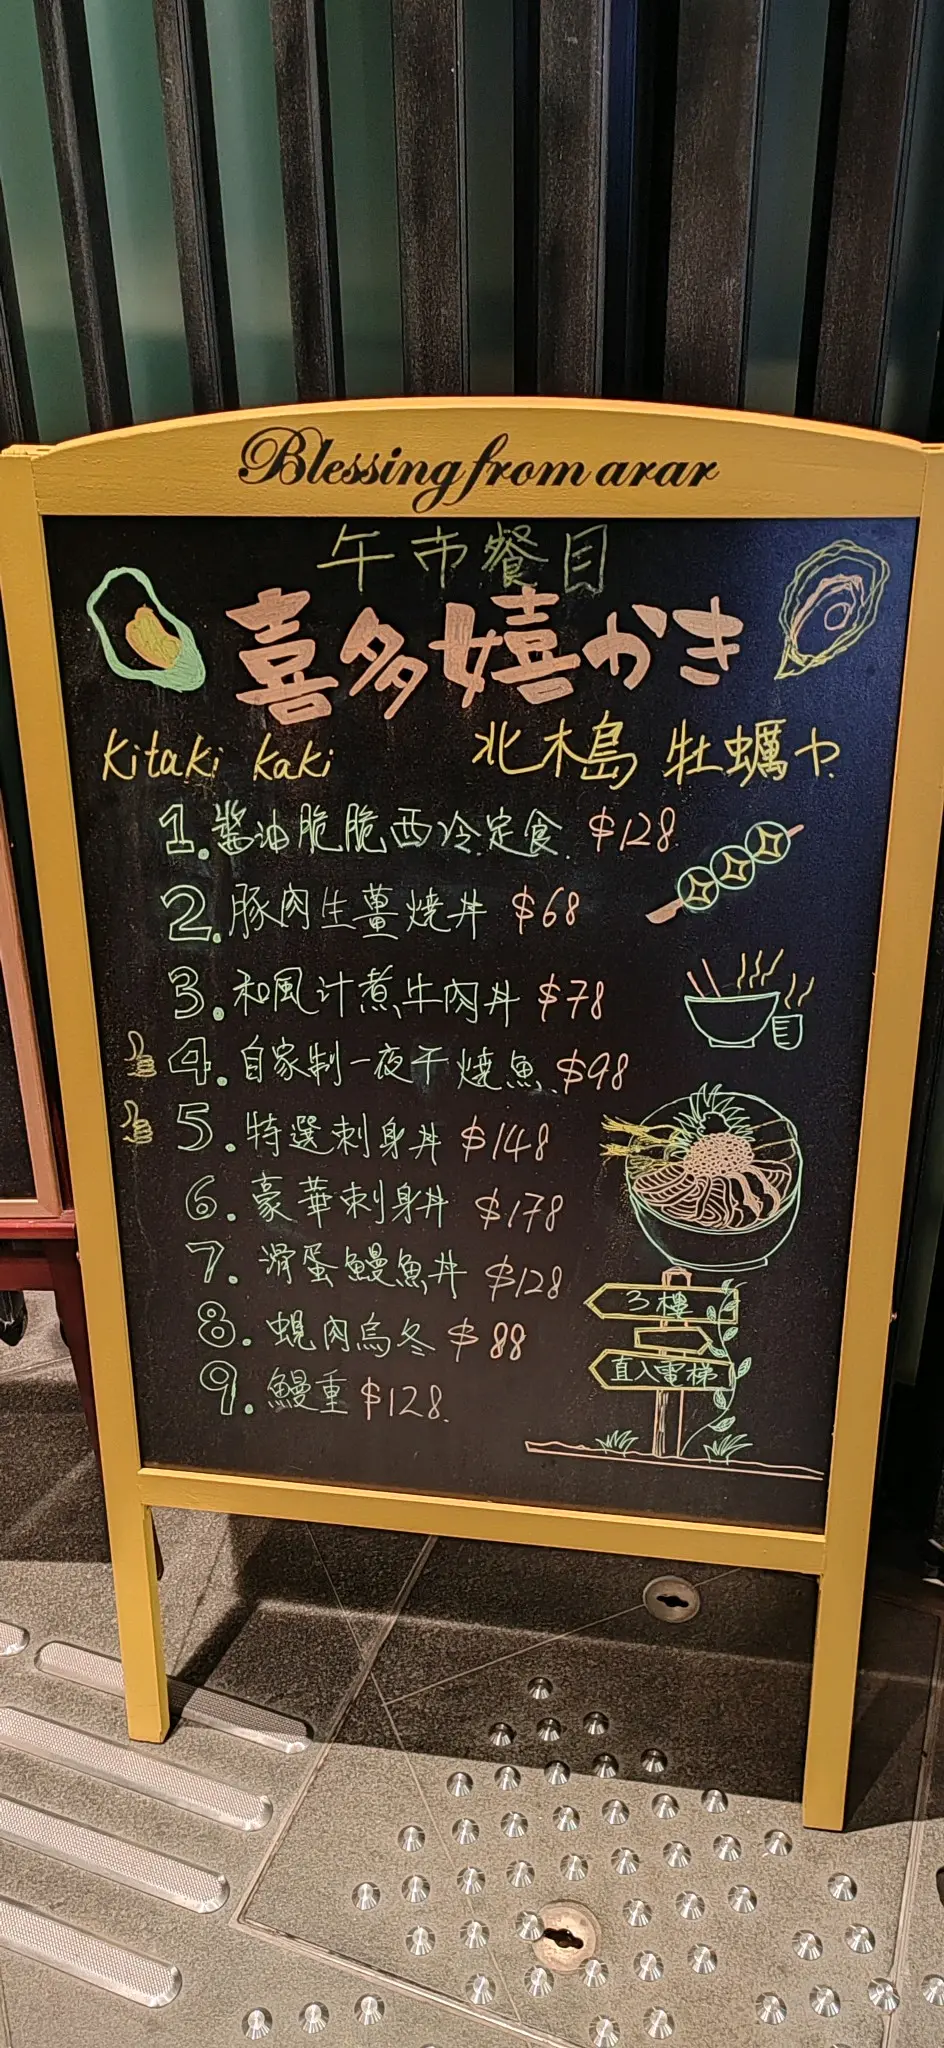 Blessing from arar
午市餐目
喜多嬉かき
Kitaki kaki 北木島 牡蠣や
1. 醬油脆脆西冷定食 $128
2. 豚肉生薑燒丼 $68
3. 和風汁煮牛肉丼 $78
4. 自家制一夜干燒魚 $98
5. 特選刺身丼 $148
6. 豪華刺身丼 $178
7. 滑蛋鰻魚丼 $128
8. 蜆肉烏冬 $88
9. 鰻重 $128
3樓
直入電梯